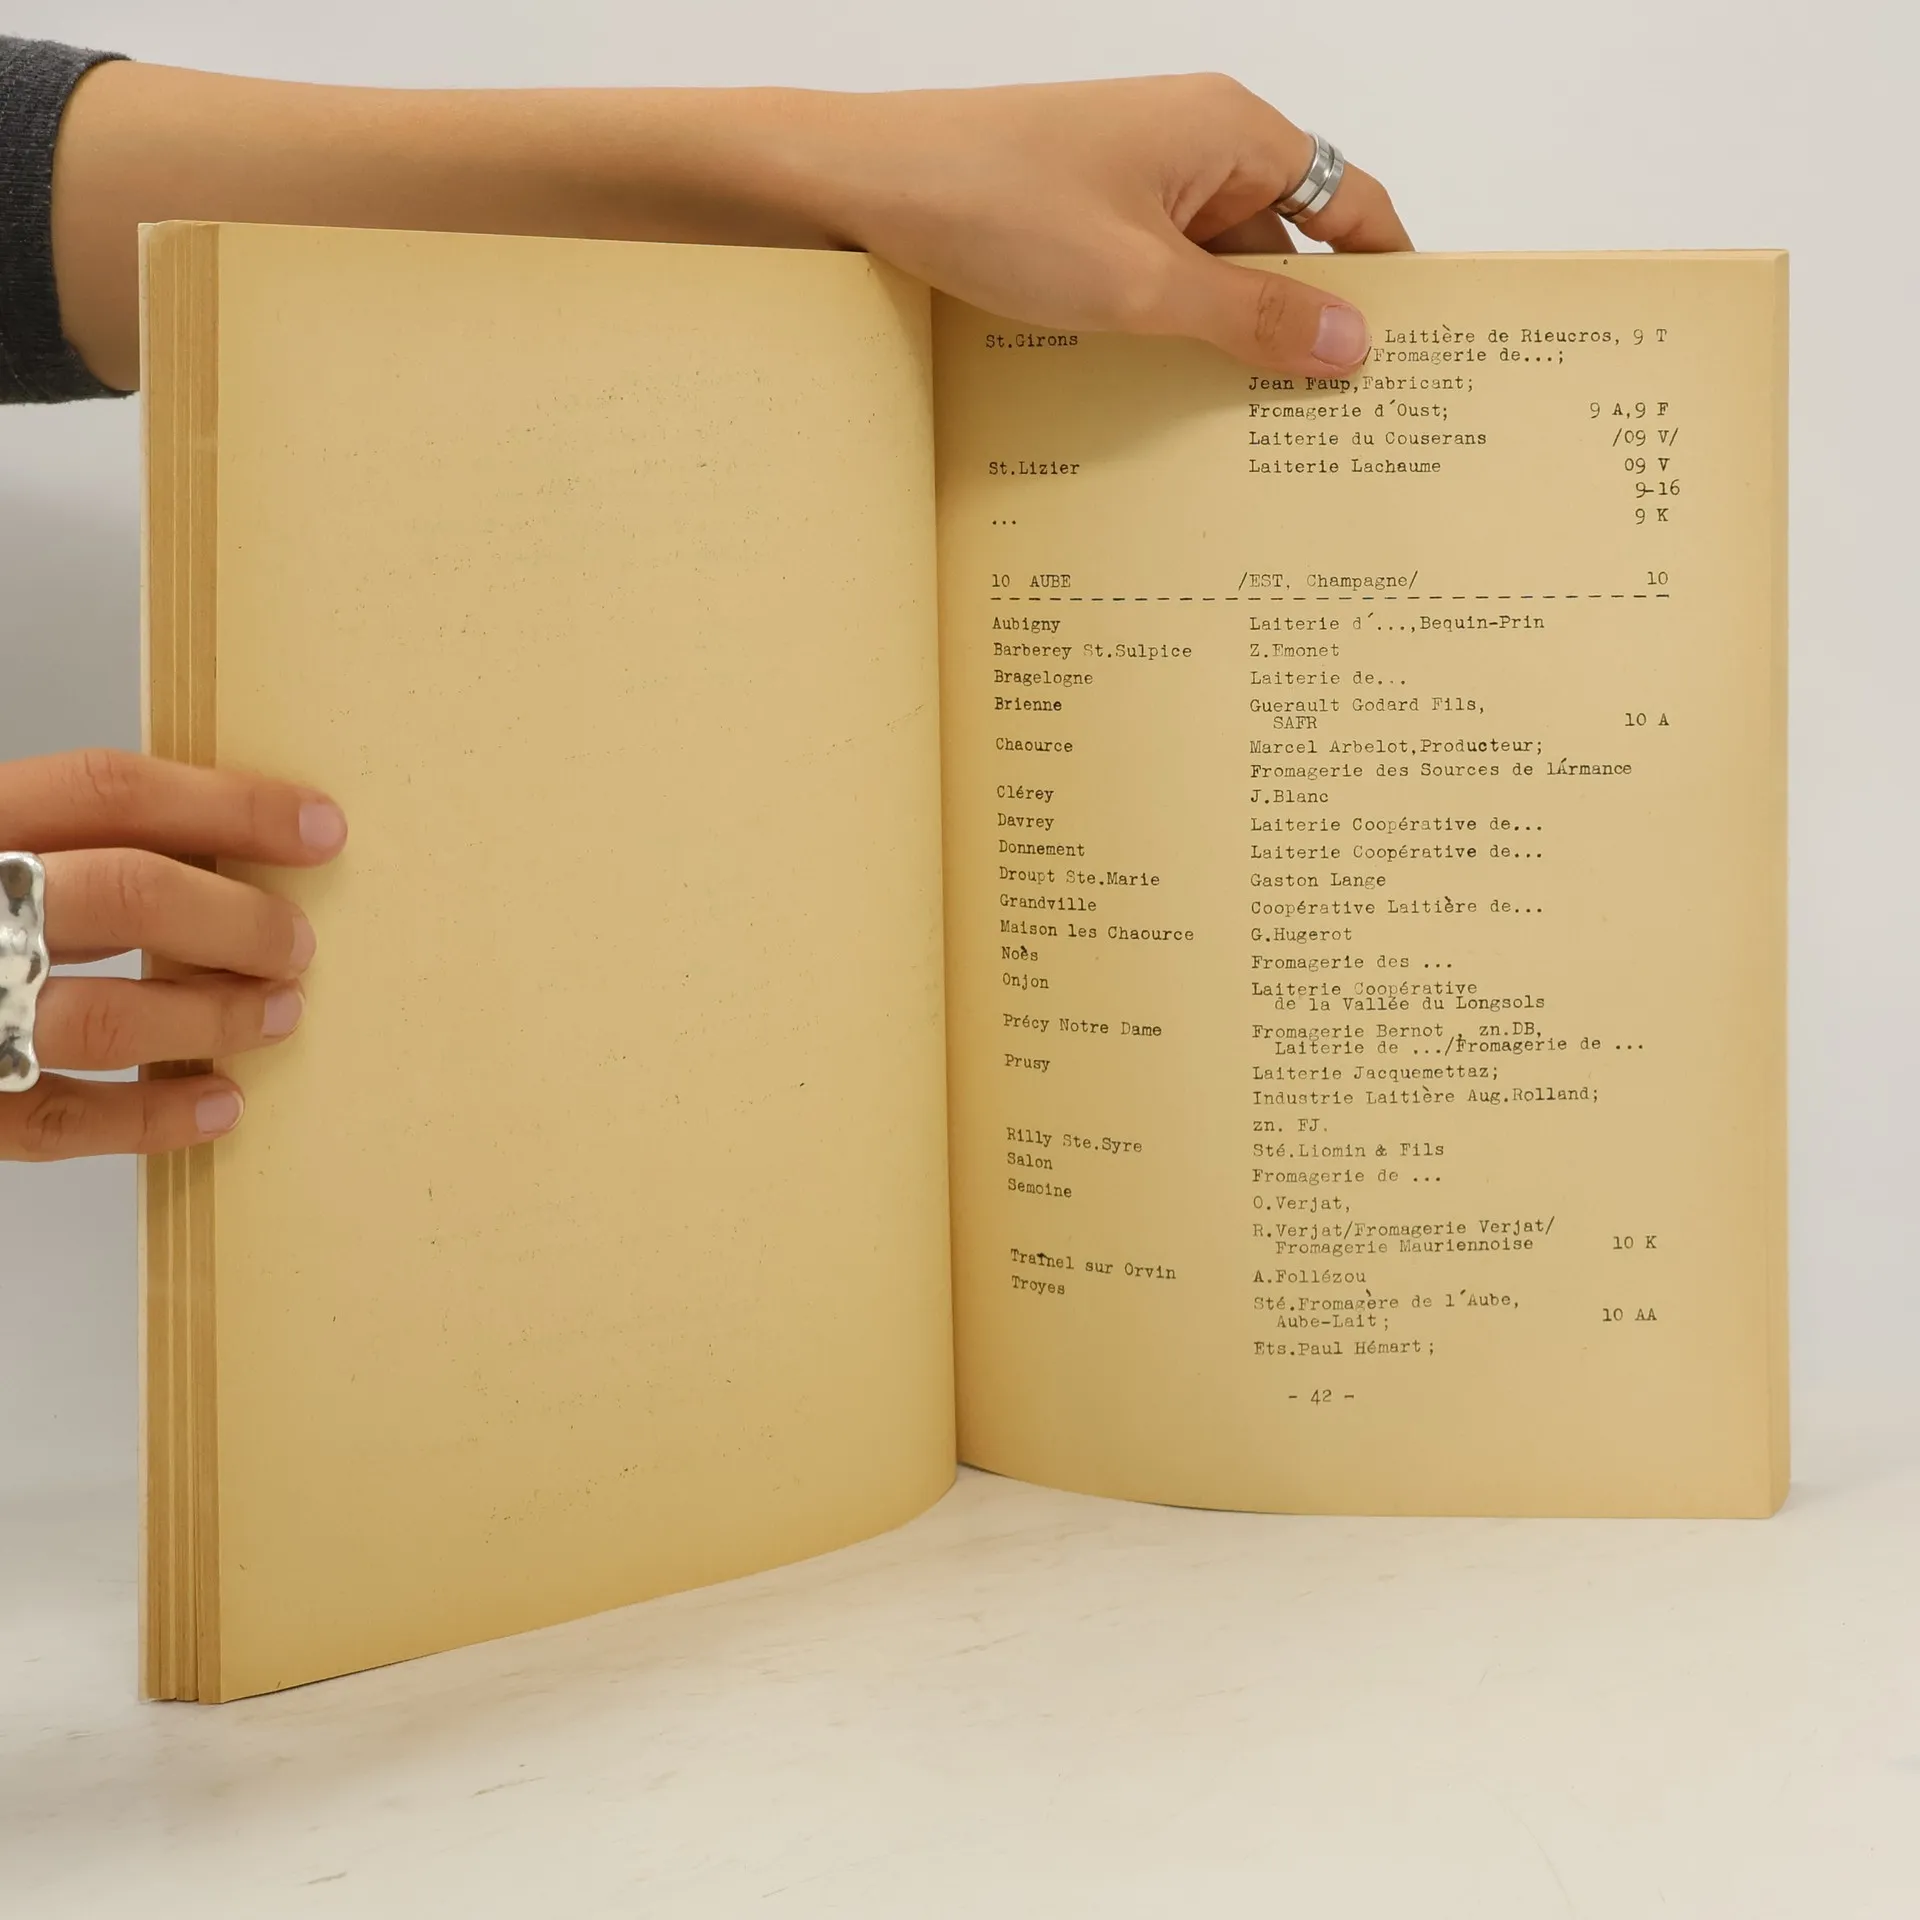 St.Girons Laitière de Rieucros, 9 T
/Fromagerie de...;
Jean Faup,Fabricant;
Fromagerie d´Oust; 9 A,9 F
Laiterie du Couserans /09 V/
St.Lizier Laiterie Lachaume 09 V
9-16
... 9 K
10 AUBE /EST, Champagne/ 10
Aubigny Laiterie d´...,Bequin-Prin
Barberey St.Sulpice Z.Emonet
Bragelogne Laiterie de...
Brienne Guerault Godard Fils,
SAFR 10 A
Chaource Marcel Arbelot,Producteur;
Fromagerie des Sources de l´Armance
Clérey J.Blanc
Davrey Laiterie Coopérative de...
Donnement Laiterie Coopérative de...
Droupt Ste.Marie Gaston Lange
Grandville Coopérative Laitière de...
Maison les Chaource G.Hugerot
Noès Fromagerie des ...
Onjon Laiterie Coopérative
de la Vallée du Longsols
Précy Notre Dame Fromagerie Bernot , zn.DB,
Laiterie de .../Fromagerie de ...
Prusy Laiterie Jacquemettaz;
Industrie Laitière Aug.Rolland;
zn. FJ.
Rilly Ste.Syre Sté.Liomin & Fils
Salon Fromagerie de ...
Semoine O.Verjat,
R.Verjat/Fromagerie Verjat/
Fromagerie Mauriennoise 10 K
Traînel sur Orvin A.Follézou
Troyes Sté.Fromagère de l´Aube,
Aube-Lait; 10 AA
Ets.Paul Hémart;
- 42 -